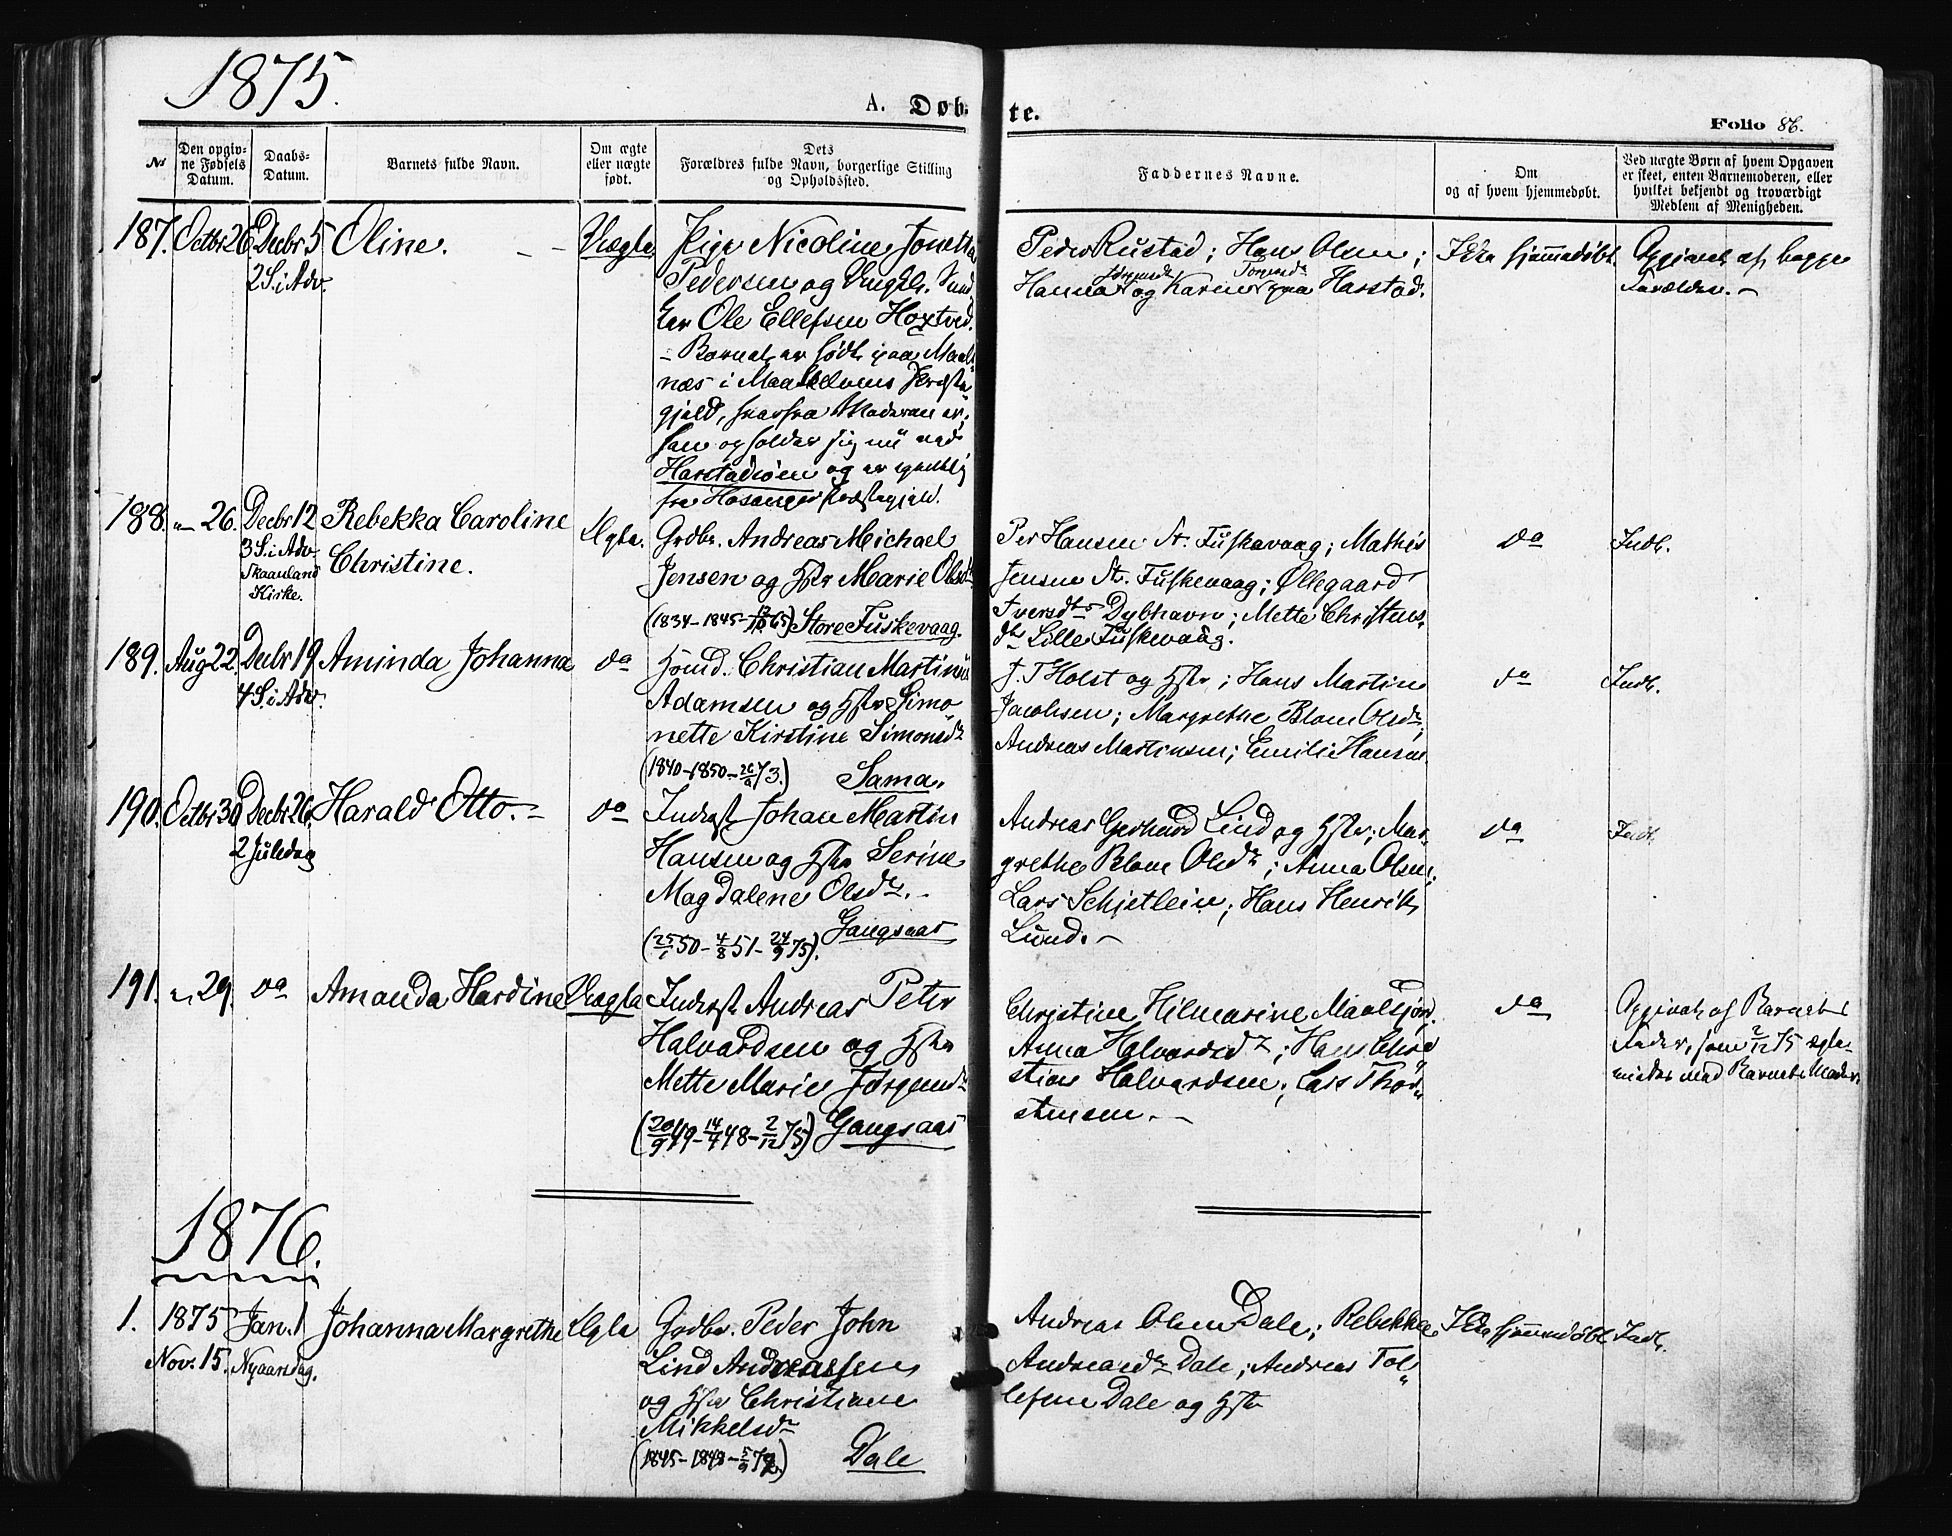 1875.
A. Døb-
te.
Folio 86.
No
Den opgiv-
ne Fødsels
Datum.
Daabs-
Datum.
Barnets fulde Navn.
Om ægte
eller uægte
født.
Dets
Forældres fulde Navn, borgerlige Stilling
og Opholdssted.
Faddernes Navne.
Om
og af hvem hjemmedøbt.
Ved uægte Børn af hvem Opgaven
er skeet, enten Barnemoderen, eller
hvilket bekjendt og troværdigt
Medlem af Menigheden.
187. Octbr 26. Decbr 5
2 S. i Adv.
Oline.
Uægte
Pige Nicoline Jonetta
Pedersen og Ungk.
Ole Ellefsen
- Barnet er født paa Maals-
næs i Maalselvens Præste-
gjeld, hvorfra Moderen er,
hun opholder sig nu ved
Harstadsøen og er egentlig
fra Hosanger Præstegjeld.
Peder Rustad; Hans Olsen;
Hanna Jørgensdr og Karen Jørgensdr paa Harstad.
Ikke hjemmedøbt.
Opgivet af begge
Forældre. -
188. " 26. Decbr 12
3 S. i Adv.
Skaanland
Kirke.
Rebekka Caroline
Christine.
Ægte.
Grdbr. Andreas Michael
Jensen og Hstr Marie Olsdr
(1834-1845- 65) Store Fuskevaag.
Per Hansen St. Fuskevaag; Mathis
Jensen St. Fuskevaag; Øllegaard
Iversdtr Dybhavn; Mette Christens-
dtr Lille Fuskevaag.
do
Indb.
189. Aug 22. Decbr 19
4 S. i Adv.
Aminda Johanna
do
Hsmd. Christian Martinus
Adamsen og Hstr Simo-
nette Kirstine Simonsdr
(1840-1850-26/9 73.) Sama.
J. T Holst og Hstr; Hans Martin
Jacobsen; Margrethe Blom Olsdr;
Andreas Martinsen; Emilie Hansen
do
Indb.
190. Octbr 30 Decbr 26.
2 Juledag
Harald Otto. -
do
Inderst Johan Martin
Hansen og Hstr Serine
Magdalene Olsdr. -
(25/ 50 - 4/8 51 - 24/9 75). Gangsaas
Andreas Gerhard Lind og Hstr; Mar-
grethe Blom Olsdr; Anna Olsen;
Lars Schjetlein; Hans Henrik
Lund. -
do
Indb.
191. " 29. do
Amanda Hardine
Uægte
Inderst Andreas Peter
Halvardsen og Hstr
Mette Marie Jørgensdr
(20/9 49 - 14/7 48 - 2/12 75) Gangsaas
Christine Hilmarine Maalsjord.
Anna Halvardsdr; Hans Chri-
stian Halvardsen; Lars Thor-
stensen. -
do
Opgivet af Barnets
Fader, som 2/12 75 ægte-
viedes med Barnets Moder.
1876.
1. 1875
Nov. 15.
Jan. 1
Nyaarsdag.
Johanna Margrethe
Ægte
Grdbr. Peder John
Lind Andreassen
og Hstr Christiane
Mikkelsdr
(1845-1848-5/9 72) Dale
Andreas Olsen Dale; Rebekka
Andreasdr Dale; Andreas Tol-
lefsen Dale og Hstr
Ikke hjemmedøbt
Indb.